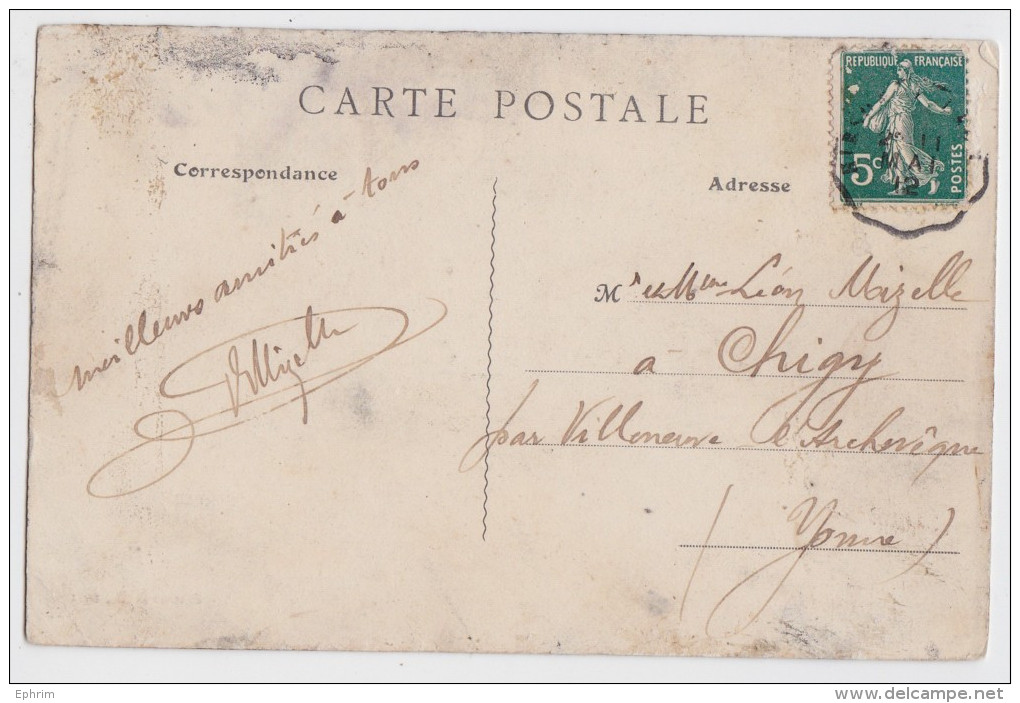 CARTE POSTALE
REPUBLIQUE FRANÇAISE
5c POSTES
11
MAI
12
Correspondance
Adresse
meilleures amitiés à tous
Mr et Mme Léon Mizelle
à Chigy
par Villeneuve l'Archevêque
(Yonne)
Ephrim
www.delcampe.net